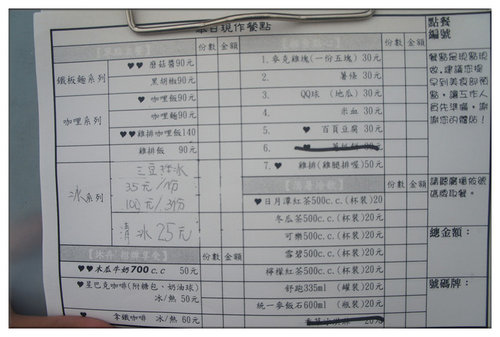 本日現作餐點
份數 金額
鐵板麵系列
♥♥ 蘑菇醬90元
黑胡椒90元
咖哩系列
♥ 咖哩飯90元
咖哩麵90元
♥♥雞排咖哩飯140
雞排飯 90元
冰系列
三豆挫冰
35元/1份
100元/3份
清冰25元
份數 金額
♥♥木瓜牛奶700c.c 50元
♥星巴克咖啡(附糖包、奶油球)
冰/熱 50元
♥
拿鐵咖啡 冰/熱 60元
份數 金額
1.麥克雞塊(一份五塊) 30元
2. 薯條 30元
3. QQ球 (地瓜) 30元
4. 米血 30元
5. ♥ 百頁豆腐 30元
6. ♥ 30元
7.♥ 雞排(雞腿排喔)50元
份數 金額
♥日月潭紅茶500c.c.(杯裝)20元
冬瓜茶500c.c.(杯裝)20元
可樂500c.c.(杯裝)20元
雪碧500c.c.(杯裝)20元
檸檬紅茶500c.c.(杯裝)20元
舒跑335ml (罐裝)20元
統一麥飯石600ml (瓶裝)20元
20元
點餐
編號
餐點是現點現
做,建議您提
早到美食部預
點,讓工作人
員先準備,謝
謝您的體貼!
請聽廣播依號
碼取餐。
總金額:
號碼牌: